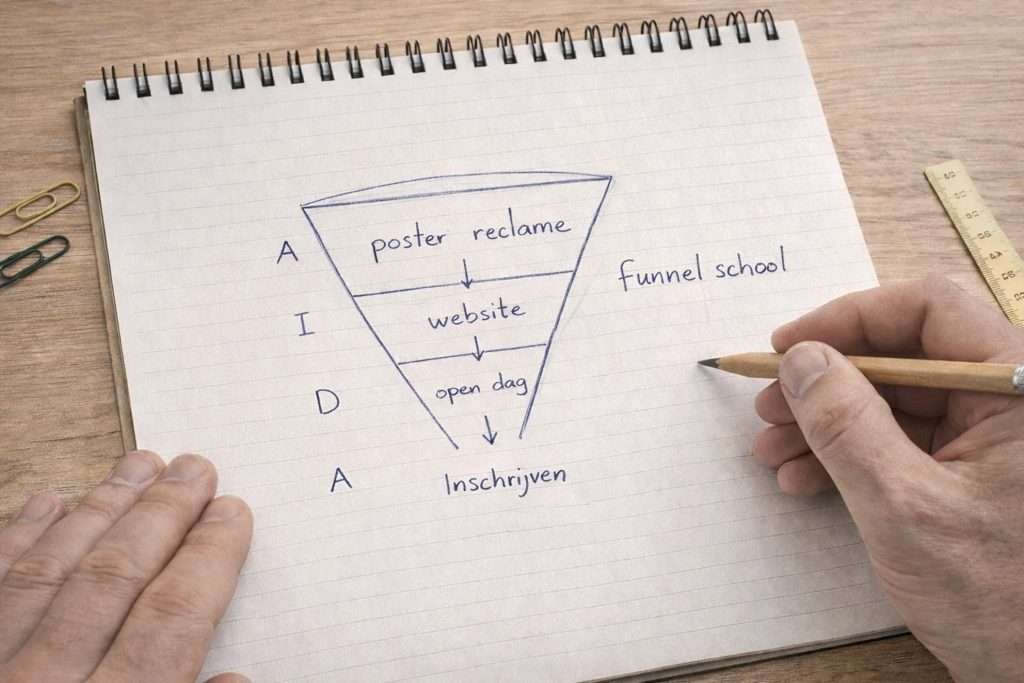 A
poster reclame
funnel school
I
website
D
open dag
A
Inschrijven